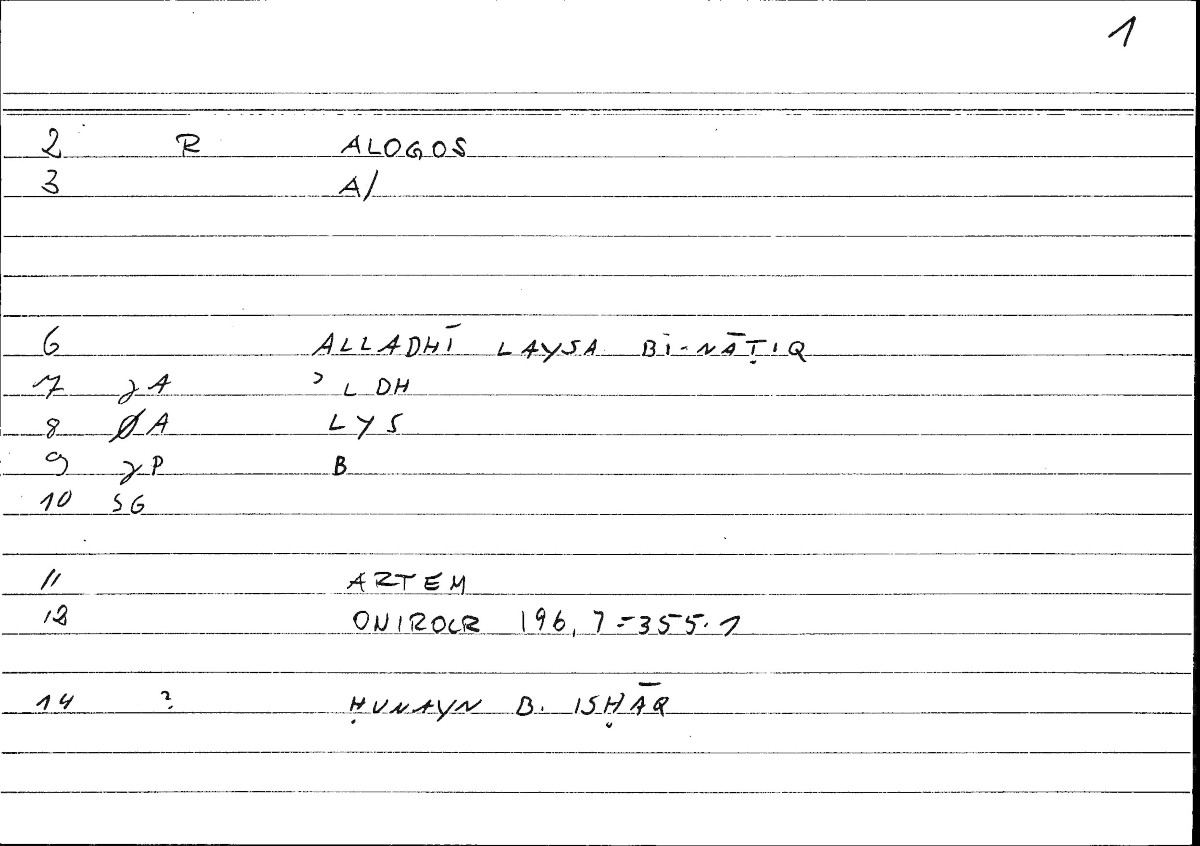 1
2 R ALOGOS
3 A/
6 ALLADHĪ LAYSA BI-NĀṬIQ
7 γA ʾLDH
8 ØA LYS
9 γP B
10 SG
11 ARTEM
12 ONIROCR 196,7=355.1
14 ? ḤUNAYN B. ISḤĀQ